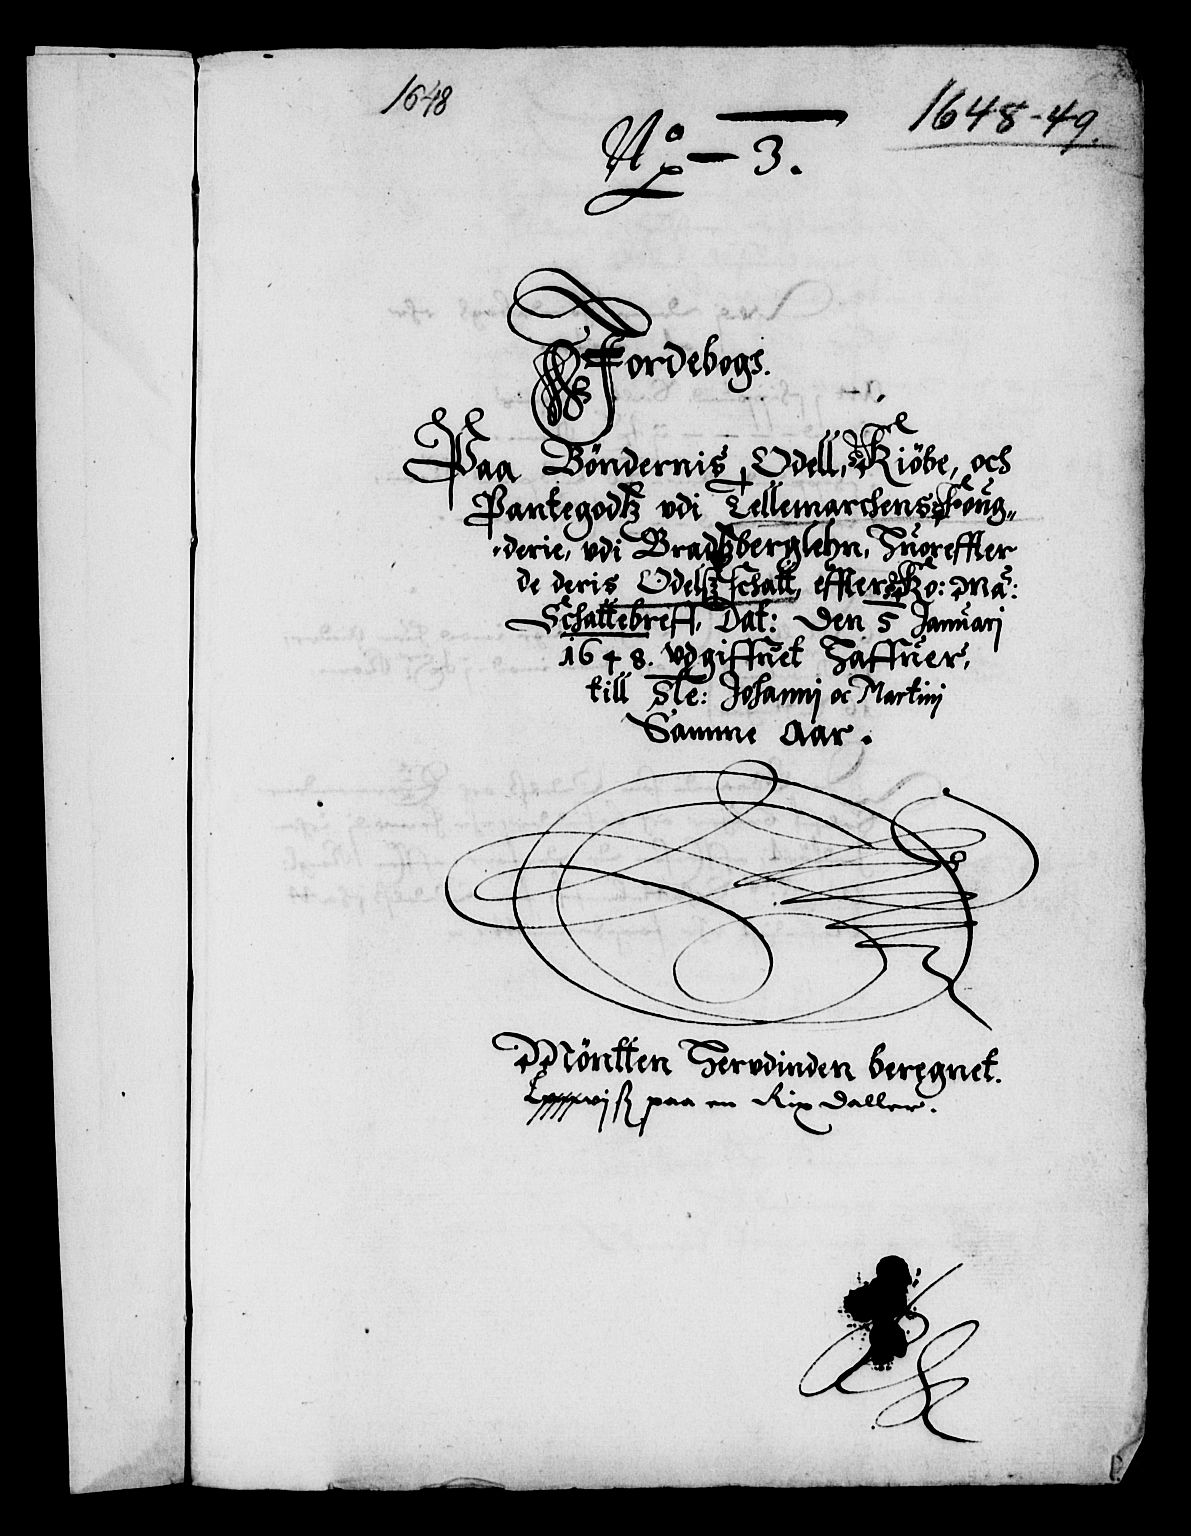 1648
1648-49.
No 3.
Jordebogs.
Paa Bøndernis Odell, Kiøbe, och
Pantegodtz vdi Tellemarchens foug„
derie, vdi Bradtzberglehn, Huoreffter
de deris Odelsz schatt, effter Ko: Ma:
Schattebreff, Dat: Den 5 Januarj
1648. vdgiffuet Haffuer,
till Ste: Johannj oc Martinj
Samme Aar.
Møntten Herudinden beregnet.
paa en Rix daller.